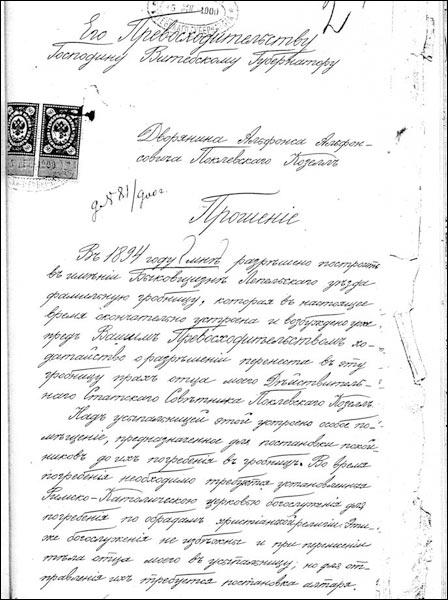 2
Его Превосходительству
Господину Витебскому Губернатору
Дворянина Альфонса Альфон-
совича Поклевскаго Козеллъ
Прошеніе
Въ 1894 году (мнѣ) разрѣшено построить
въ имѣніи Быковщизнѣ Лепельскаго уѣзда
фамильную гробницу, которая въ настоящее
время окончательно устроена и возбуждено уже
предъ Вашимъ Превосходительствомъ хо-
датайство о разрѣшеніи перенести въ эту
гробницу прахъ отца моего Дѣйствитель-
наго Статскаго Совѣтника Поклевскаго Козеллъ.
Надъ усыпальницей этой устроено особое по-
мѣщеніе, предназначенное для постановки покой-
никовъ до ихъ погребенія въ гробницѣ. Во время
погребенія необходимо требуется установленная
Римско-Католическою церковью богослуженія для
погребенія по обрядамъ христіанской религіи. Эти-
же богослуженія не избѣжны и при перенесеніи
тѣла отца моего въ усыпальницу, но для от-
правленія ихъ требуется постановка алтаря.